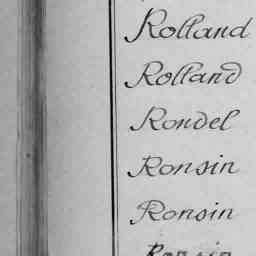 Rolland
Rolland
Rondel
Ronsin
Ronsin
Ronsin